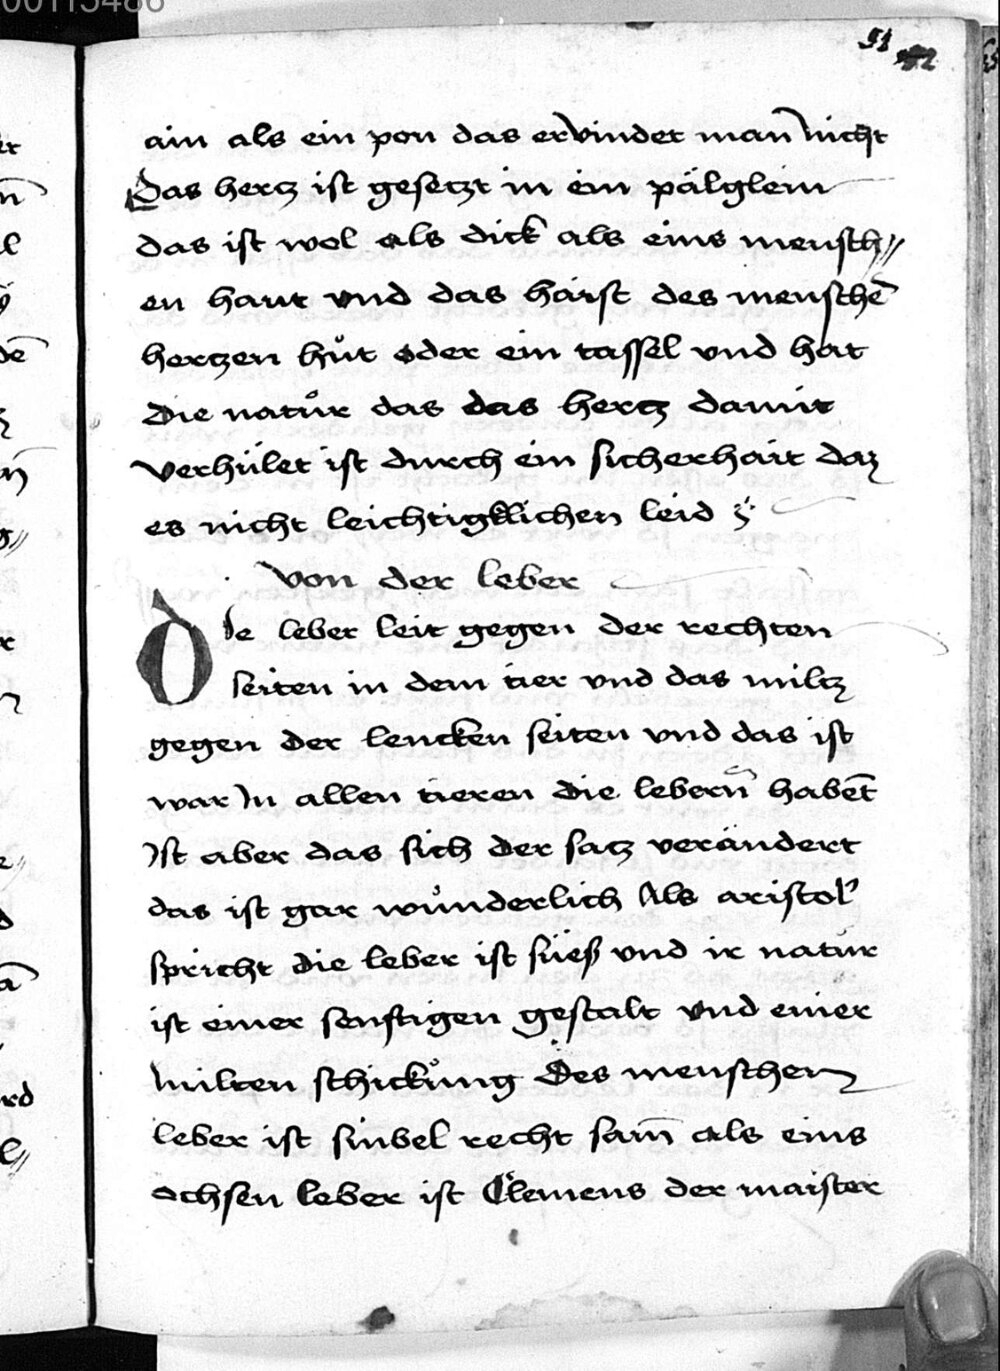 00113486
51 52
ain als ein pon das ervindet man̄ nicht
Das hertz ist gesetzt in ein pälglein
das ist wol als dick als eins mensch〃
en haut vnd das haist des menschē
hertzen hůt oder ein tassel vnd hat
die natůr das das hertz damit
verhület ist durch ein sicherhait daz
es nicht leichtigklichen leid
von der leber
Die leber leit gegen der rechten
seiten in dem tier vnd das miltz
gegen der lencken seiten vnd das ist
war In allen tieren die lebern̄ habēt
Ist aber das sich der satz verändert
das ist gar wůnderlich Als aristotʼ
spricht die leber ist süeß vnd ir natur
ist einer senftigen gestalt vnd einer
milten schickůng Des menschen
leber ist sinbel recht sam̄ als eins
ochsen leber ist Clemens der maister